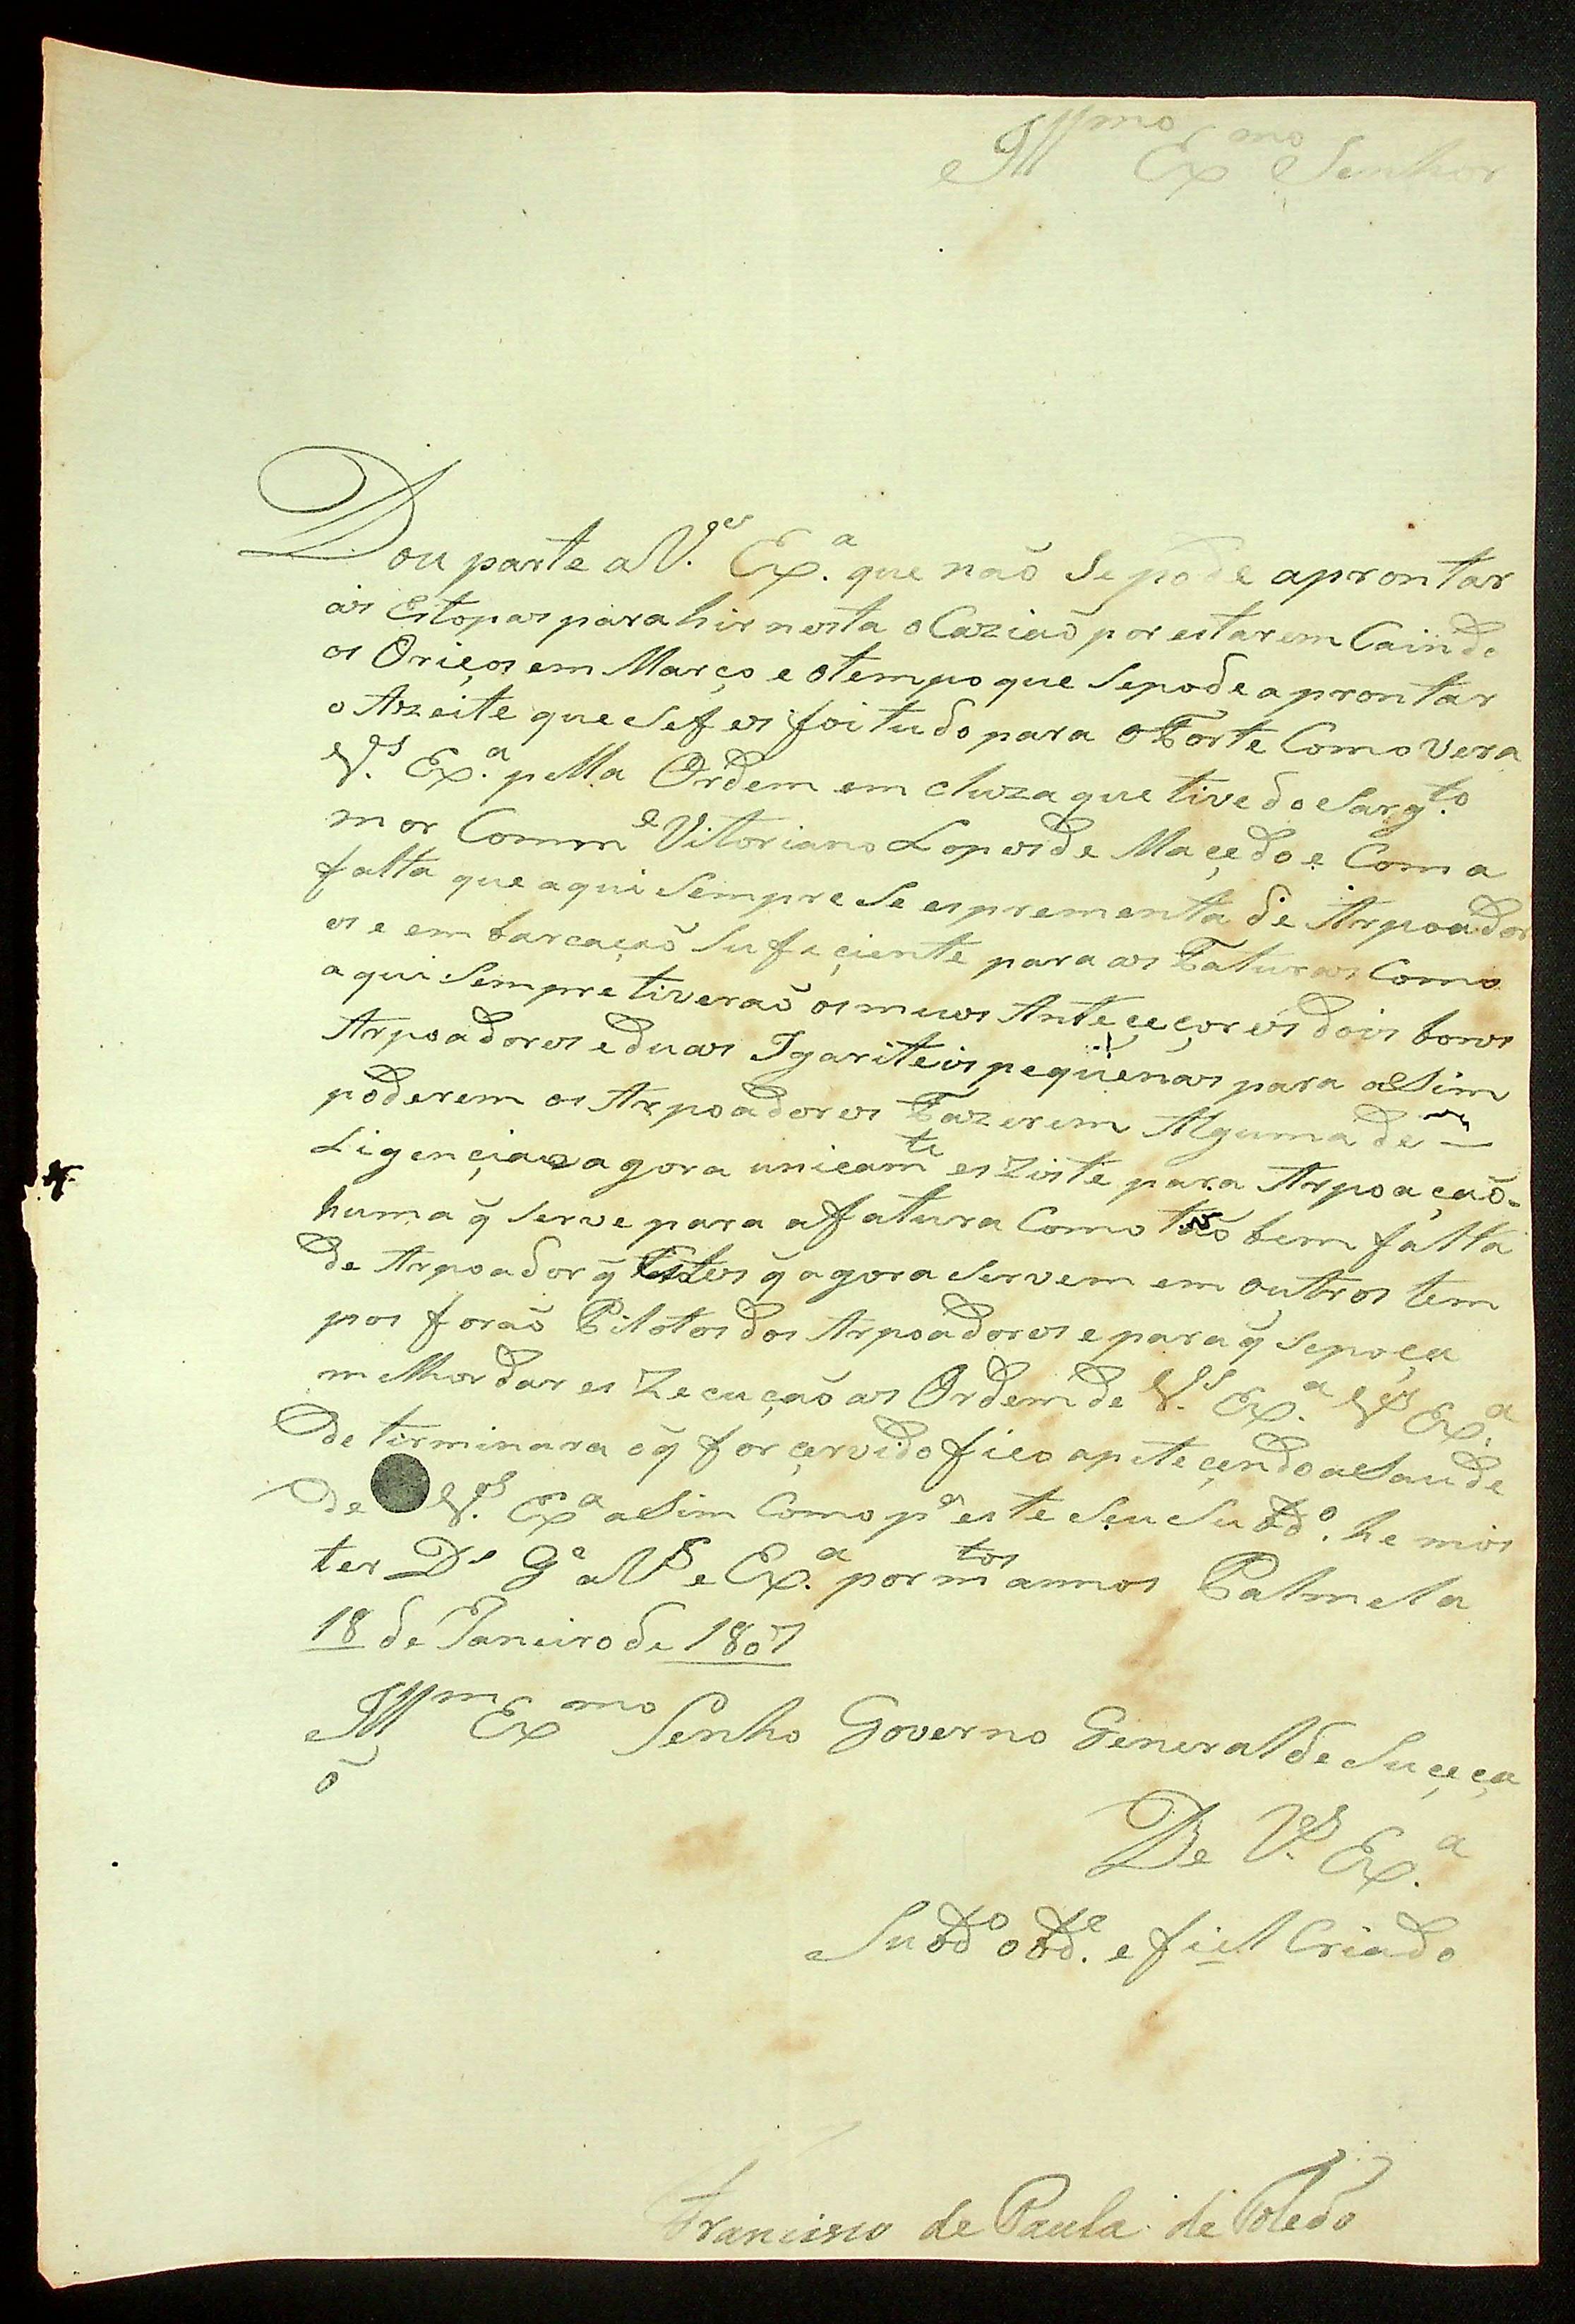 Illmo Exmo Senhor
Dou parte a V.es Ex.a que naõ se pode aprontar
as Estopas para hir nesta oCaziaõ por estarem Caindo
os Oriços em Março e otempo que Sepode aprontar
o Azeite que sefes foi tudo para o Forte Como Vera
V.s Ex.a pella Ordem em cluza que tive do Sargto
mor Comme Vitoriano Lopes de Maçedo e Com a
falta que aqui Sempre Se esprementa de Arpoador
es e embarcaçaõ Sufeçiente para as Faturas Como
aqui Sempre tiveraõ os meus Anteçeçores dois bons
Arpoadores e duas Igariteis pequenas para assim
poderem os Arpoadores Fazerem Alguma de
Ligençia agora unicamte es Ziste para Arpoaçaõ
huma q̃ Serve para a fatura Como taõ bem falta
de Arpoador q̃ Estes q̃ agora Servem em outros tem
pos foraõ Pilotos dos Arpoadores e para q̃ Sepoça
melhor dar es Zecuçaõ as Ordem de V.s Ex.a V.es Ex.a
Determinara oq̃ for çervido fico apeteçendo aSaude
de V.es Exa assim Como pa este Seu Subdo. he mis
ter Ds Ge a Vs e Ex.a por mtos annos Palmela
18 de Janeiro de 1807
Illm Exmo Senho Governo General de Suçeça
õ
De V.es Ex.a
Subdo obde. e fiel Criado
Francisco de Paula de Toledo